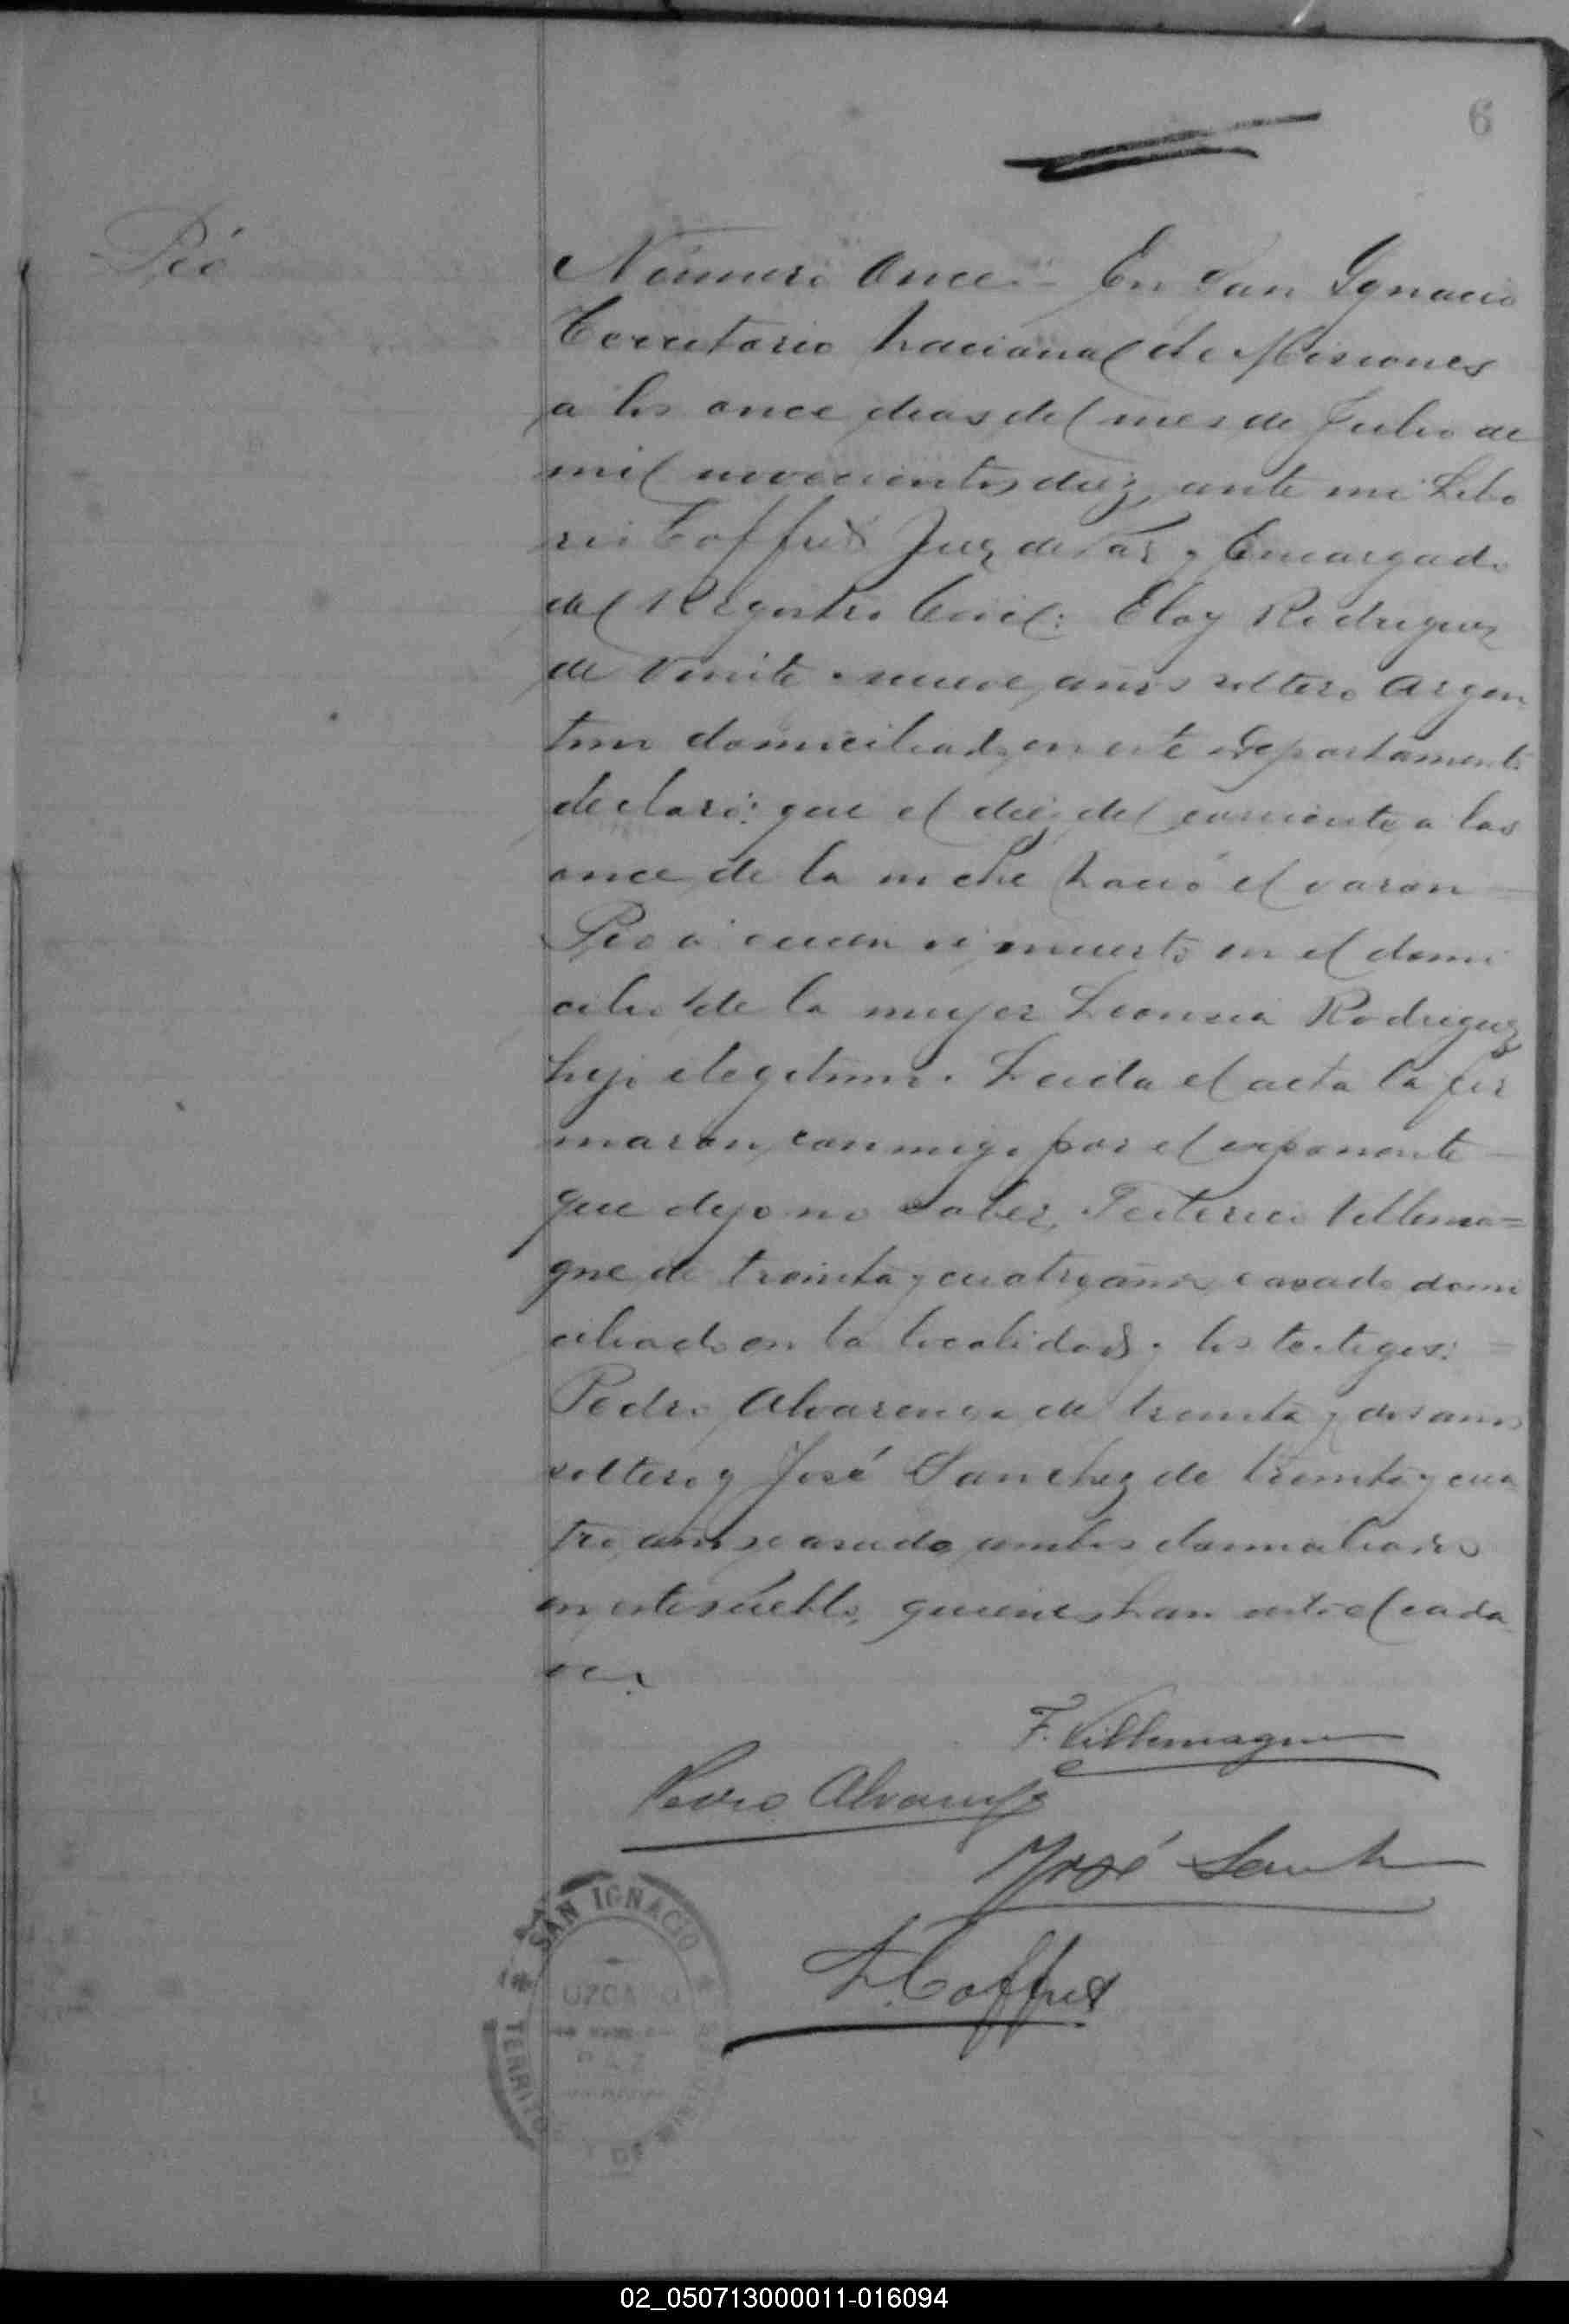 6
Pió
Número Once.- En San Ignacio
Territorio Nacional de Misiones
a los once dias del mes de Julio de
mil novecientos diez, ante mi Libo
rio Coffret Juez de Paz y Encargado
del Registro Civil: Eloy Rodriguez
de veinte y nueve años soltero argen
tino domiciliado en este departamento
declaró: que el diez del corriente a las
once de la noche nació el varon
Pio á quien ví muerto en el domi
cilio de la mujer Leoncia Rodriguez
hijo ilegitimo. Leida el acta la fir
maron conmigo por el exponente
que dijo no saber, Federico Villema=
gne de treinta y cuatro años casado domi
ciliado en la localidad y los testigos: =
Pedro Alvarenga de treinta y dos años
soltero y José Sanchez de treinta y cua
tro años casado ambos domiciliados
en este pueblo, quienes han visto el cada
ver.
F. Villemagne
Pedro Alvarenga
José Sanch
L. Coffret
SAN IGNACIO
JUZGADO
DE
PAZ
TERRITORIO DE MISIONES
02_050713000011-016094